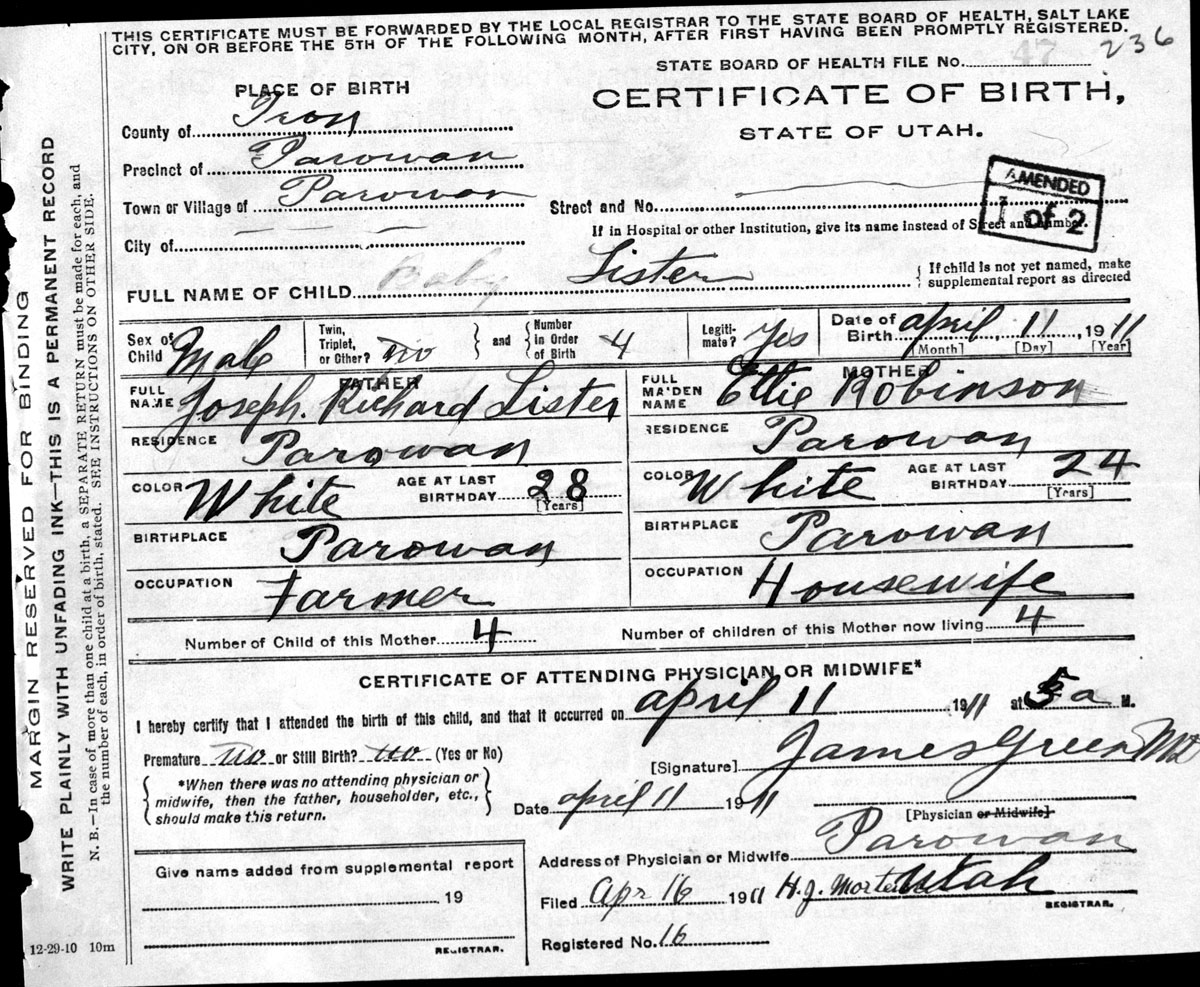 THIS CERTIFICATE MUST BE FORWARDED BY THE LOCAL REGISTRAR TO THE STATE BOARD OF HEALTH, SALT LAKE
CITY, ON OR BEFORE THE 5TH OF THE FOLLOWING MONTH, AFTER FIRST HAVING BEEN PROMPTLY REGISTERED.
236
STATE BOARD OF HEALTH FILE No. 47
PLACE OF BIRTH
CERTIFICATE OF BIRTH,
STATE OF UTAH.
County of Iron
Precinct of Parowan
Town or Village of Parowan
Street and No.
AMENDED
1 of 2
City of
If in Hospital or other Institution, give its name Instead of Street and Number.
FULL NAME OF CHILD Baby Lister
{ If child is not yet named, make
supplemental report as directed
Sex of Child Male
Twin, Triplet, or Other? no } and { Number in Order of Birth 4
Legiti- mate? Yes
Date of Birth april 11 1911
[Month] [Day] [Year]
FATHER
FULL NAME Joseph. Richard Lister
RESIDENCE Parowan
COLOR White AGE AT LAST BIRTHDAY 28
[Years]
BIRTHPLACE Parowan
OCCUPATION Farmer
MOTHER
FULL MAIDEN NAME Ettie Robinson
RESIDENCE Parowan
COLOR White AGE AT LAST BIRTHDAY 24
[Years]
BIRTHPLACE Parowan
OCCUPATION Housewife
Number of Child of this Mother 4 Number of children of this Mother now living 4
CERTIFICATE OF ATTENDING PHYSICIAN OR MIDWIFE*
I hereby certify that I attended the birth of this child, and that it occurred on april 11 1911 at 5 a M.
Premature no or Still Birth? no (Yes or No)
[Signature] James Green MD
{ *When there was no attending physician or
midwife, then the father, householder, etc.,
should make this return. }
Date april 11 1911
[Physician or Midwife]
Address of Physician or Midwife Parowan
Utah
Filed Apr 16 1911 H.J.
REGISTRAR.
Registered No. 16
Give name added from supplemental report
19
REGISTRAR.
12-29-10 10m
MARGIN RESERVED FOR BINDING
WRITE PLAINLY WITH UNFADING INK—THIS IS A PERMANENT RECORD
N. B.—In case of more than one child at a birth, a SEPARATE RETURN must be made for each, and
the number of each, in order of birth, stated. SEE INSTRUCTIONS ON OTHER SIDE.